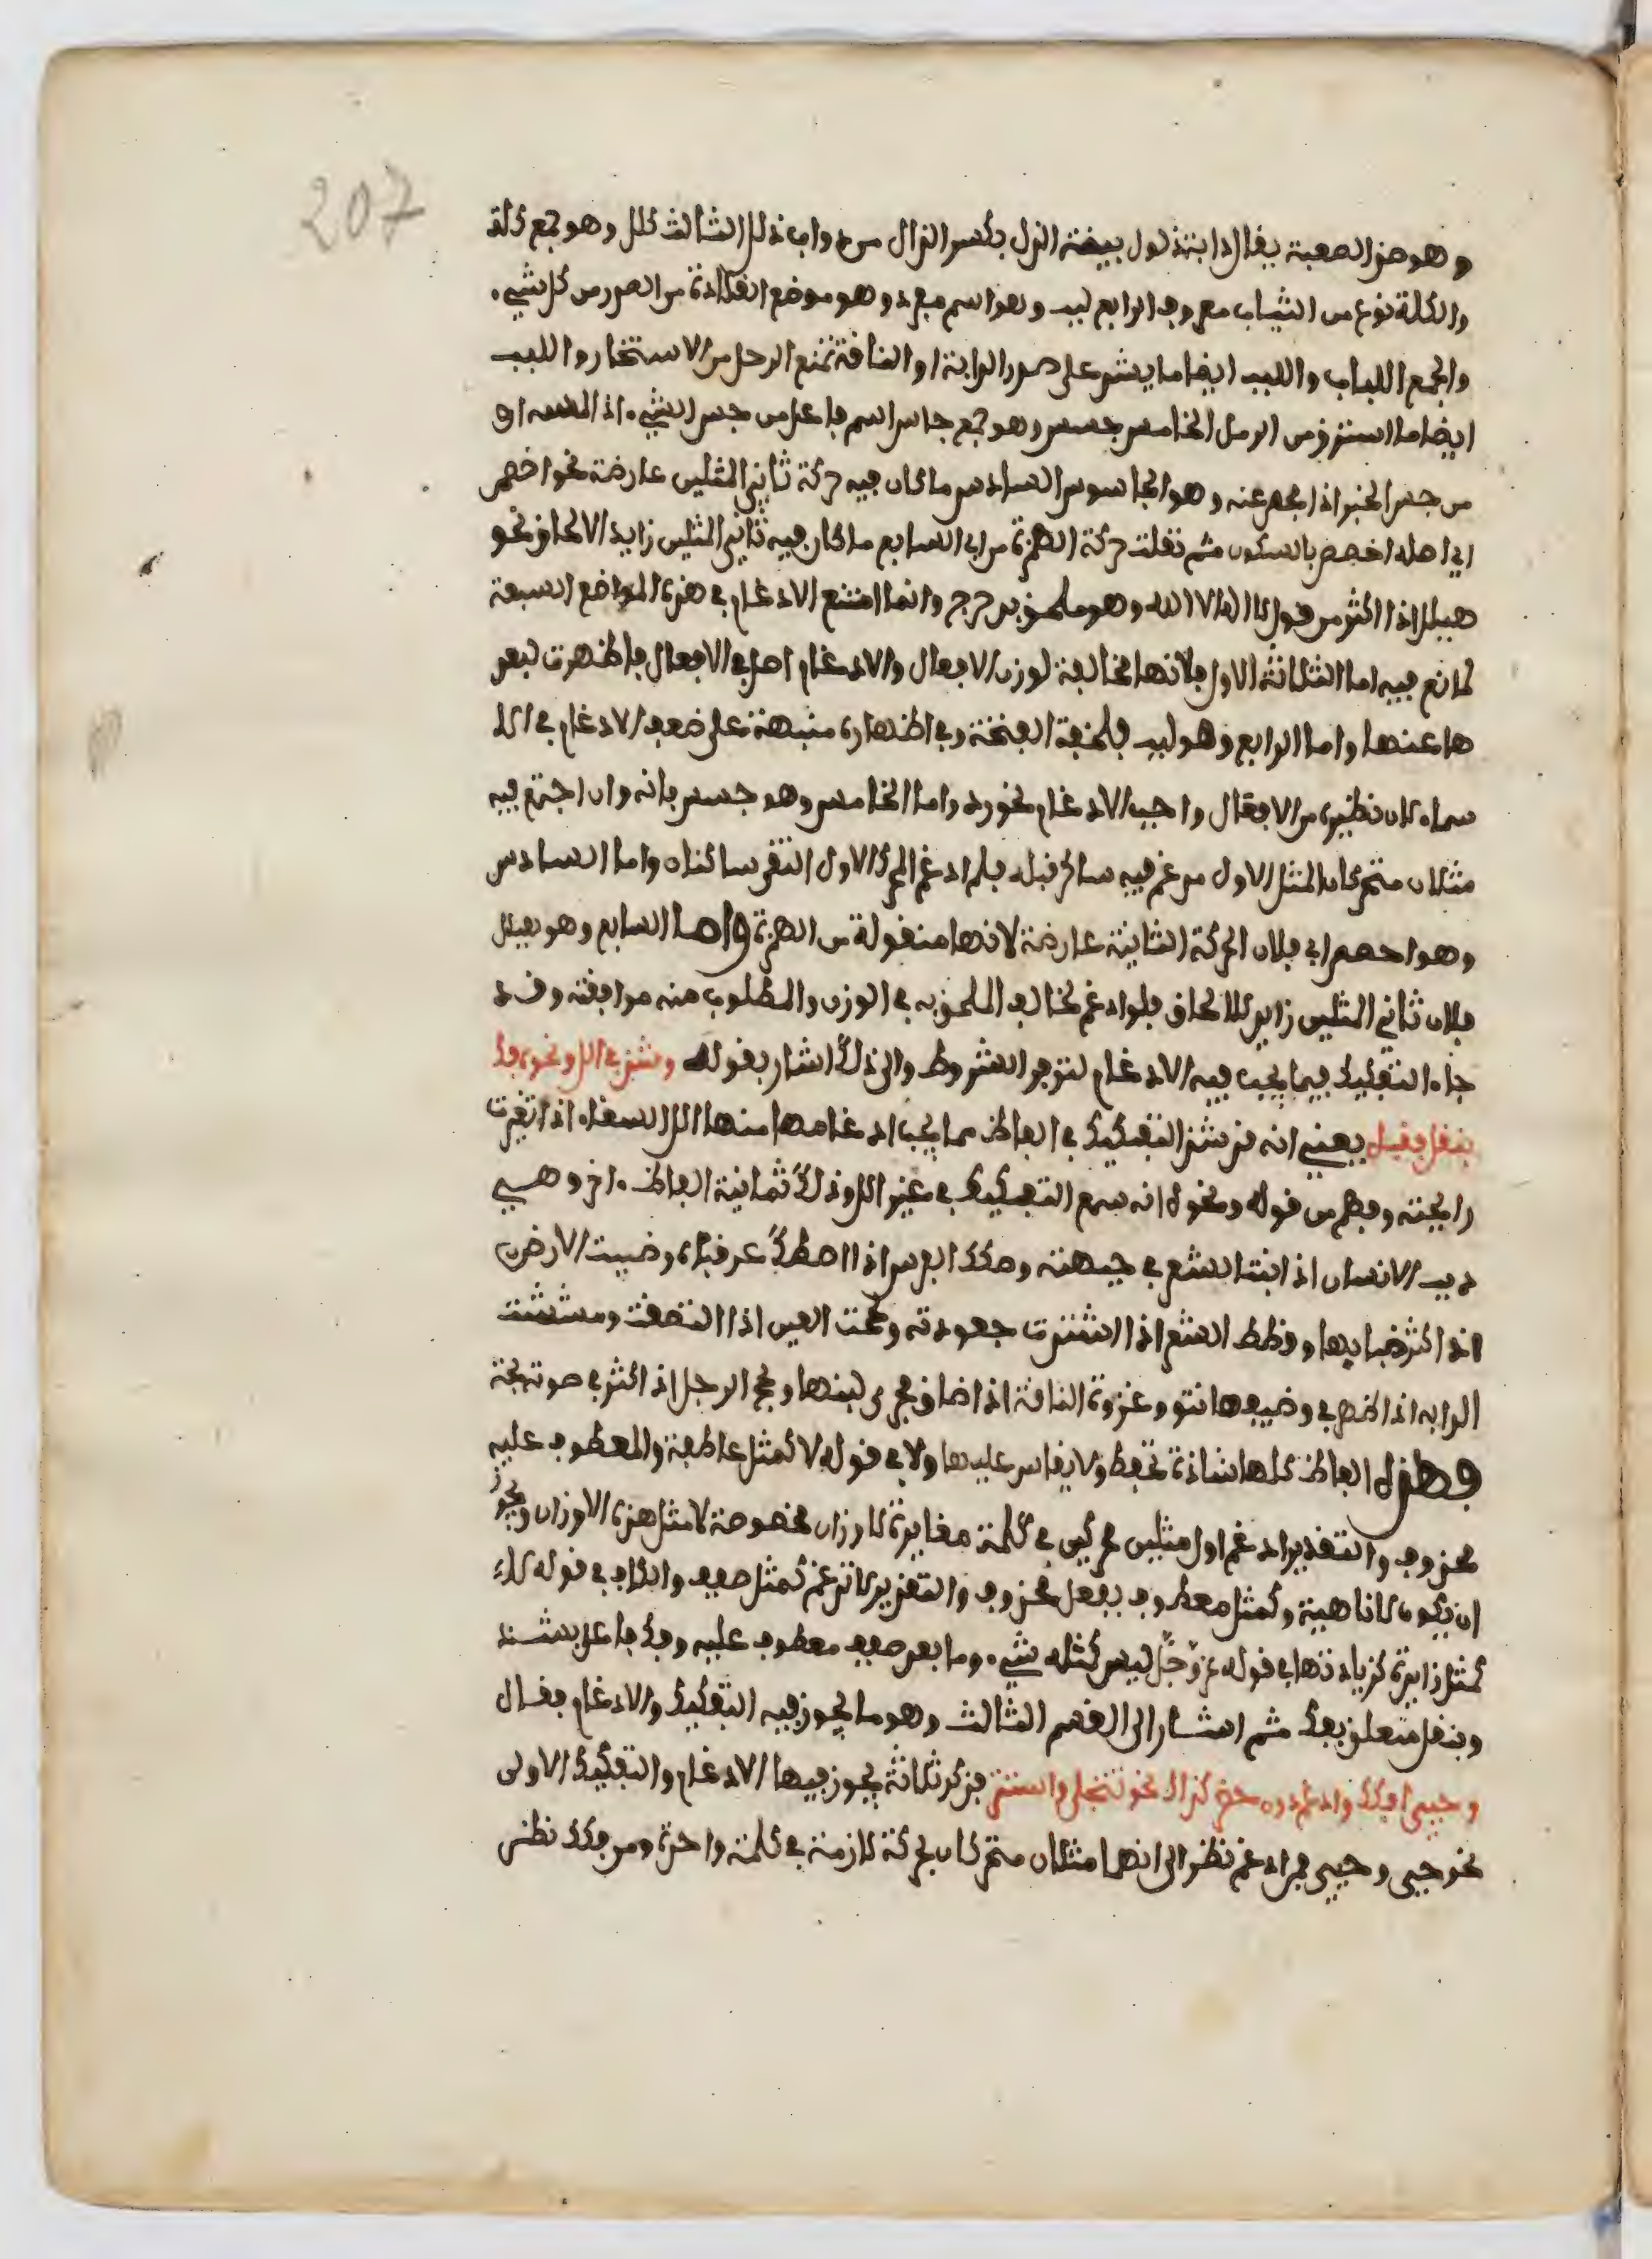 207
وهو ضد الصعبة يقال دابة ذلول بينة الذل بكسر الذال من دواب ذلل الثالث كلل وهو جمع كلة
والكلة نوع من الثياب معروف الرابع لبب وهو اسم مفرد وهو موضع القلادة من الصدر من كل شيء
والجمع اللباب واللبب ايضا ما يشد على صدر الدابة او الناقة تمنع الرحل من الاستخار واللبب
ايضا ما استرق من الرمل الخامس جسس وهو جمع جاس اسم فاعل من جس الشيء اذا لمسه او
من جس الخبر اذا فحص عنه وهو الجاسوس السادس ما كان فيه حركة ثاني المثلين عارضة نحو اخصص
ابي اصله اخصص بالسكون ثم نقلت حركة الهمزة من ابي السابع ما كان فيه ثاني المثلين زايد الالحاق نحو
هيلل اذا اكثر من قول لا اله الا الله وهو ملحق بدحرج وانما امتنع الادغام في هذه المواضع السبعة
لمانع فيه اما الثلاثة الاول فلانها مخالفة لوزن الافعال والادغام اصل في الافعال فاظهرت لبعد
ها عنها واما الرابع وهو لبب فلخفة الفتحة وفي اظهاره منبهة على ضعف الادغام في الا
سماء لان نظيره من الافعال واجب الادغام نحو رد واما الخامس وهو جسس فانه وان اجتمع فيه
مثلان متحركان المثل الاول مدغم فيه ساكن قبله فلم ادغم المحرك الاول التقى ساكنان واما السادس
وهو اخصص ابي فلان الحركة الثانية عارضة لانها منقولة من الهمزة واما السابع وهو هيلل
فلان ثاني المثلين زايد للالحاق فلو ادغم لخالف الملحق به في الوزن والمطلوب منه موافقته وقد
جاء التفكيك فيما يجب فيه الادغام لتوفر الشروط والى ذلك اشار بقوله وشذ في الل ونحوه فك
بنقل فقبل يعني انه قد شذ التفكيك في الفاظ مما يجب ادغامها منها الل السقاء اذا تغيرت
رايحته وفهم من قوله ونحوه انه سمع التفكيك في غير الل وذلك ثمانية الفاظ اخر وهي
دبب الانسان اذا نبت الشعر في جبهته وصكك الفرس اذا اصطك عرقوباه وضببت الارض
اذا كثر ضبابها وقطط الشعر اذا اشتدت جعودته ولححت العين اذا التصقت ومششت
الدابة اذا ظهر في وضيفها نتو وعززت الناقة اذا ضاق مجرى لبنها وبحح الرجل اذا كثر في صوته بحة
وهذه الفاظ كلها شاذة تحفظ ولا يقاس عليها ولا في قوله لا كمثل عاطفة والمعطوف عليه
محذوف والتقدير ادغم اول مثلين محركين في كلمة مغايرة لاوزان مخصوصة لا مثل هذه الاوزان ويجوز
ان يكون لا ناهية وكمثل معطوف بفعل محذوف والتقدير لا تدغم كمثل صفف والكاف في قوله لا
كمثل زايدة كزيادتها في قوله عز وجل ليس كمثله شيء وما بعد صفف معطوف عليه وفك فاعل بشذ
وبنقل متعلق بفك ثم اشار الى القسم الثالث وهو ما يجوز فيه التفكيك والادغام فقال
وحيي افكك وادغم دون حذر كذاك نحو تتجلى واستتر فذكر ثلاثة يجوز فيها الادغام والتفكيك الاولى
نحو حيي وحيي فمن ادغم نظر الى انهما مثلان متحركان بحركة لازمة في كلمة واحدة ومن فكك نظر